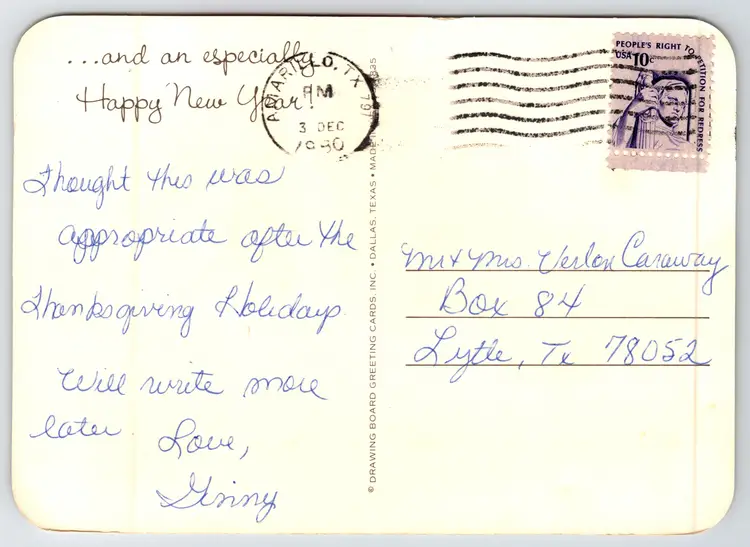 ...and an especially
Happy New Year!
Thought this was
appropriate after the
Thanksgiving Holidays.
Will write more
later.
Love,
Ginny
© DRAWING BOARD GREETING CARDS, INC. • DALLAS, TEXAS • MADE
AMARILLO, TX 791
PM
3 DEC
1980
PEOPLE'S RIGHT TO PETITION FOR REDRESS
USA 10c
Mr & Mrs. Verlon Caraway
Box 84
Lytle, Tx 78052